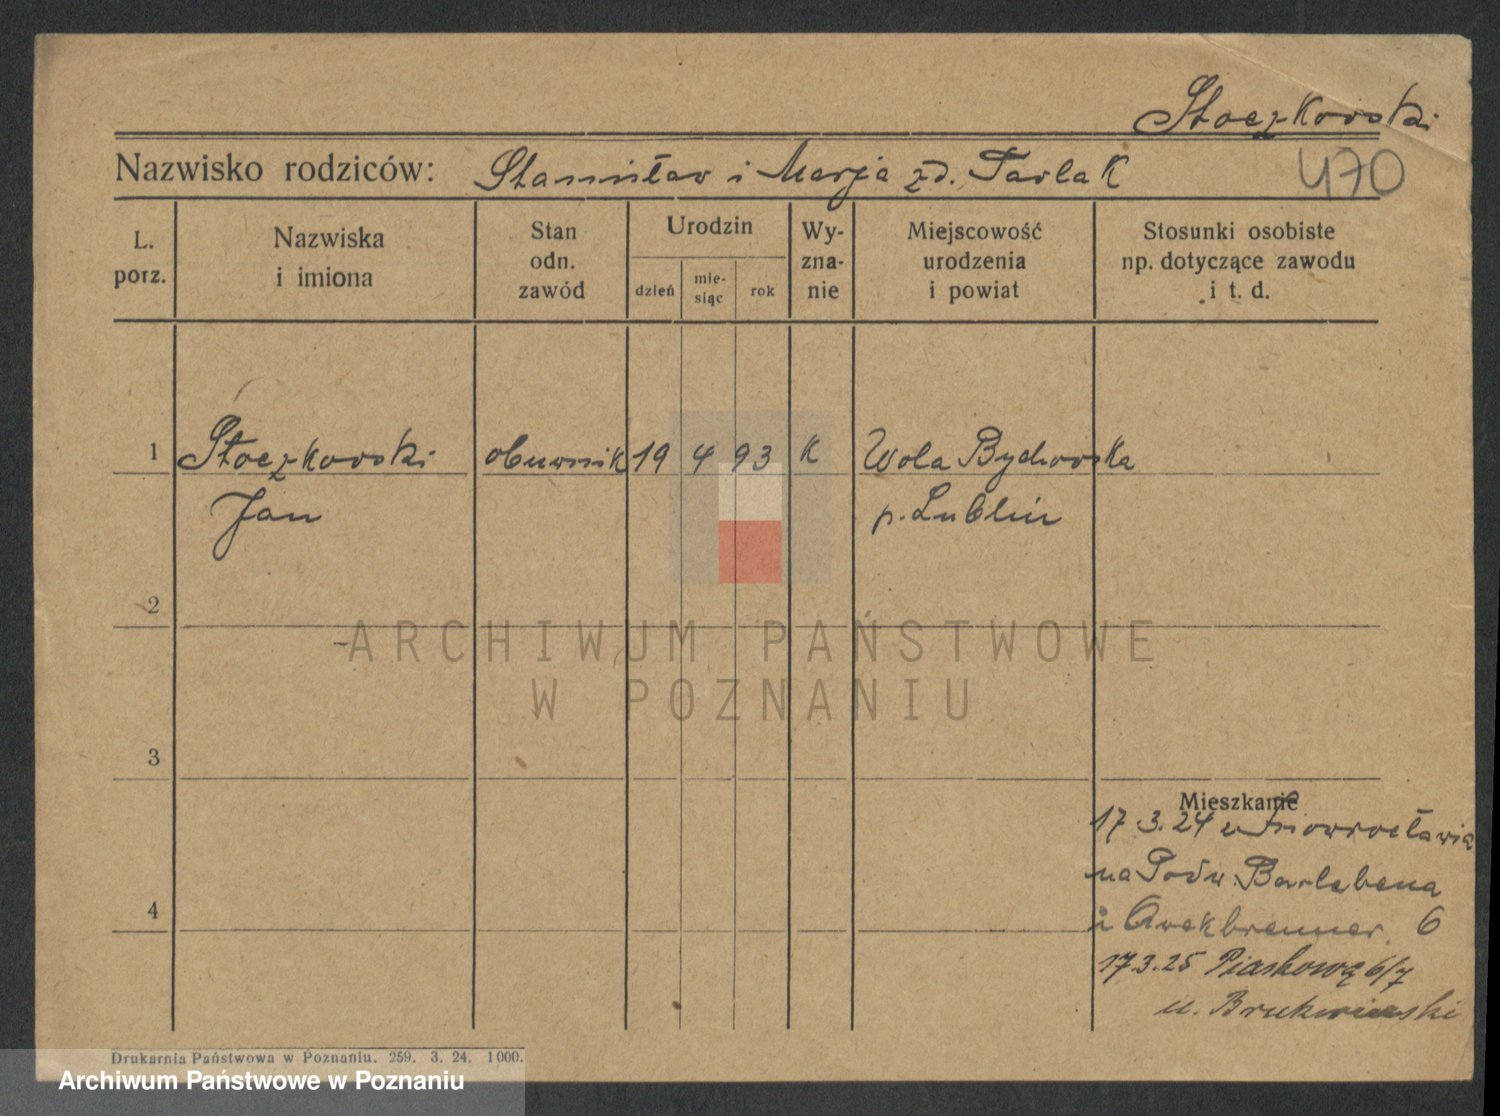 Stoczkowski
Nazwisko rodziców: Stanisław i Marja zd. Pawlak
470
L. porz.
Nazwiska i imiona
Stan odn. zawód
Urodzin
dzień
mie-
siąc
rok
Wy-
zna-
nie
Miejscowość urodzenia i powiat
Stosunki osobiste np. dotyczące zawodu i t. d.
1 Stoczkowski obuwnik 19 4 93 K Wola Bychowska
Jan p. Lublin
2
ARCHIWUM PAŃSTWOWE
W POZNANIU
3
Mieszkanie
17.3.24 z Inowrocławia
na Podw.
4
i 6
17.3.25 Piaskową 6/7
u.
Drukarnia Państwowa w Poznaniu. 259. 3. 24. 1000.
Archiwum Państwowe w Poznaniu